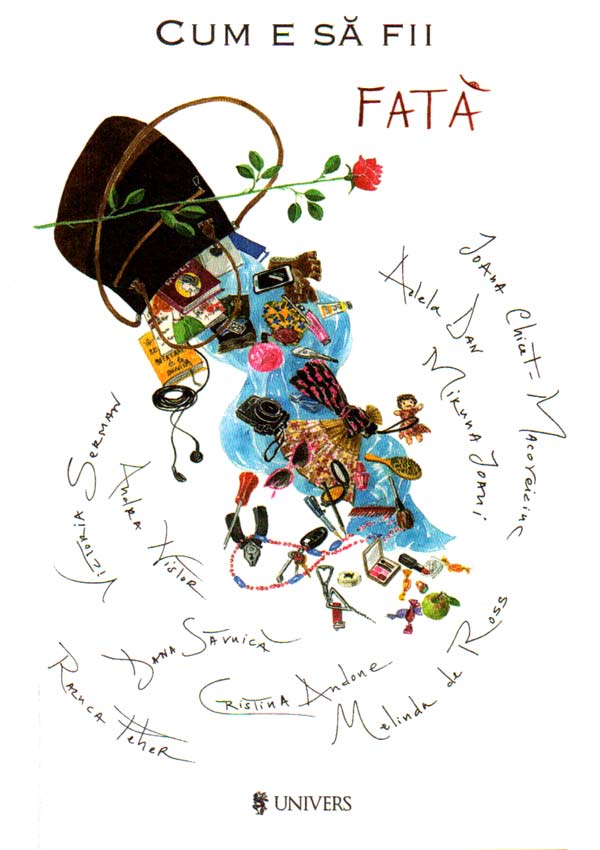 CUM E SĂ FII
FATĂ
Ioana Chicet-Macoveiciuc
Adela Dan
Miruna Ioani
Victoria Serman
Andra Nistor
Dana Săvnică
Cristina Andone
Melinda de Ross
Raluca Feher
UNIVERS